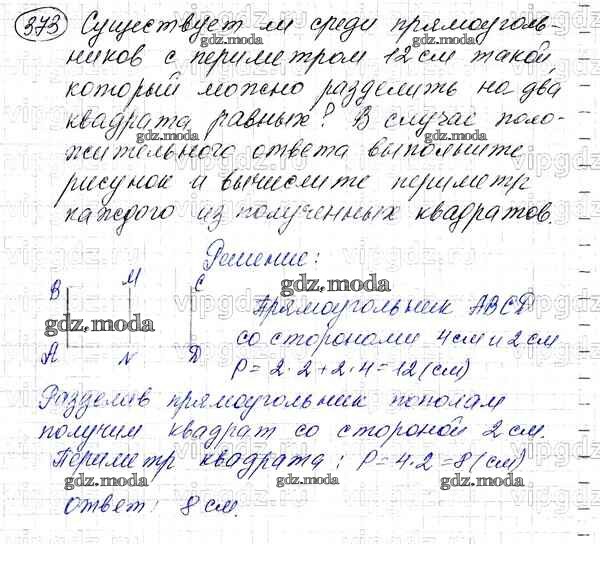 373 Существует ли среди прямоуголь-
ников с периметром 12 см такой,
который можно разделить на два
квадрата равных? В случае поло-
жительного ответа выполните
рисунок и вычислите периметр
каждого из полученных квадратов.
Решение:
B M C
A N D
Прямоугольник ABCD
со сторонами 4см и 2 см
P = 2·2+2·4=12(см)
Разделив прямоугольник пополам
получим квадрат со стороной 2 см.
Периметр квадрата: P=4·2=8(см)
ответ: 8 см.
gdz.moda
vipgdz